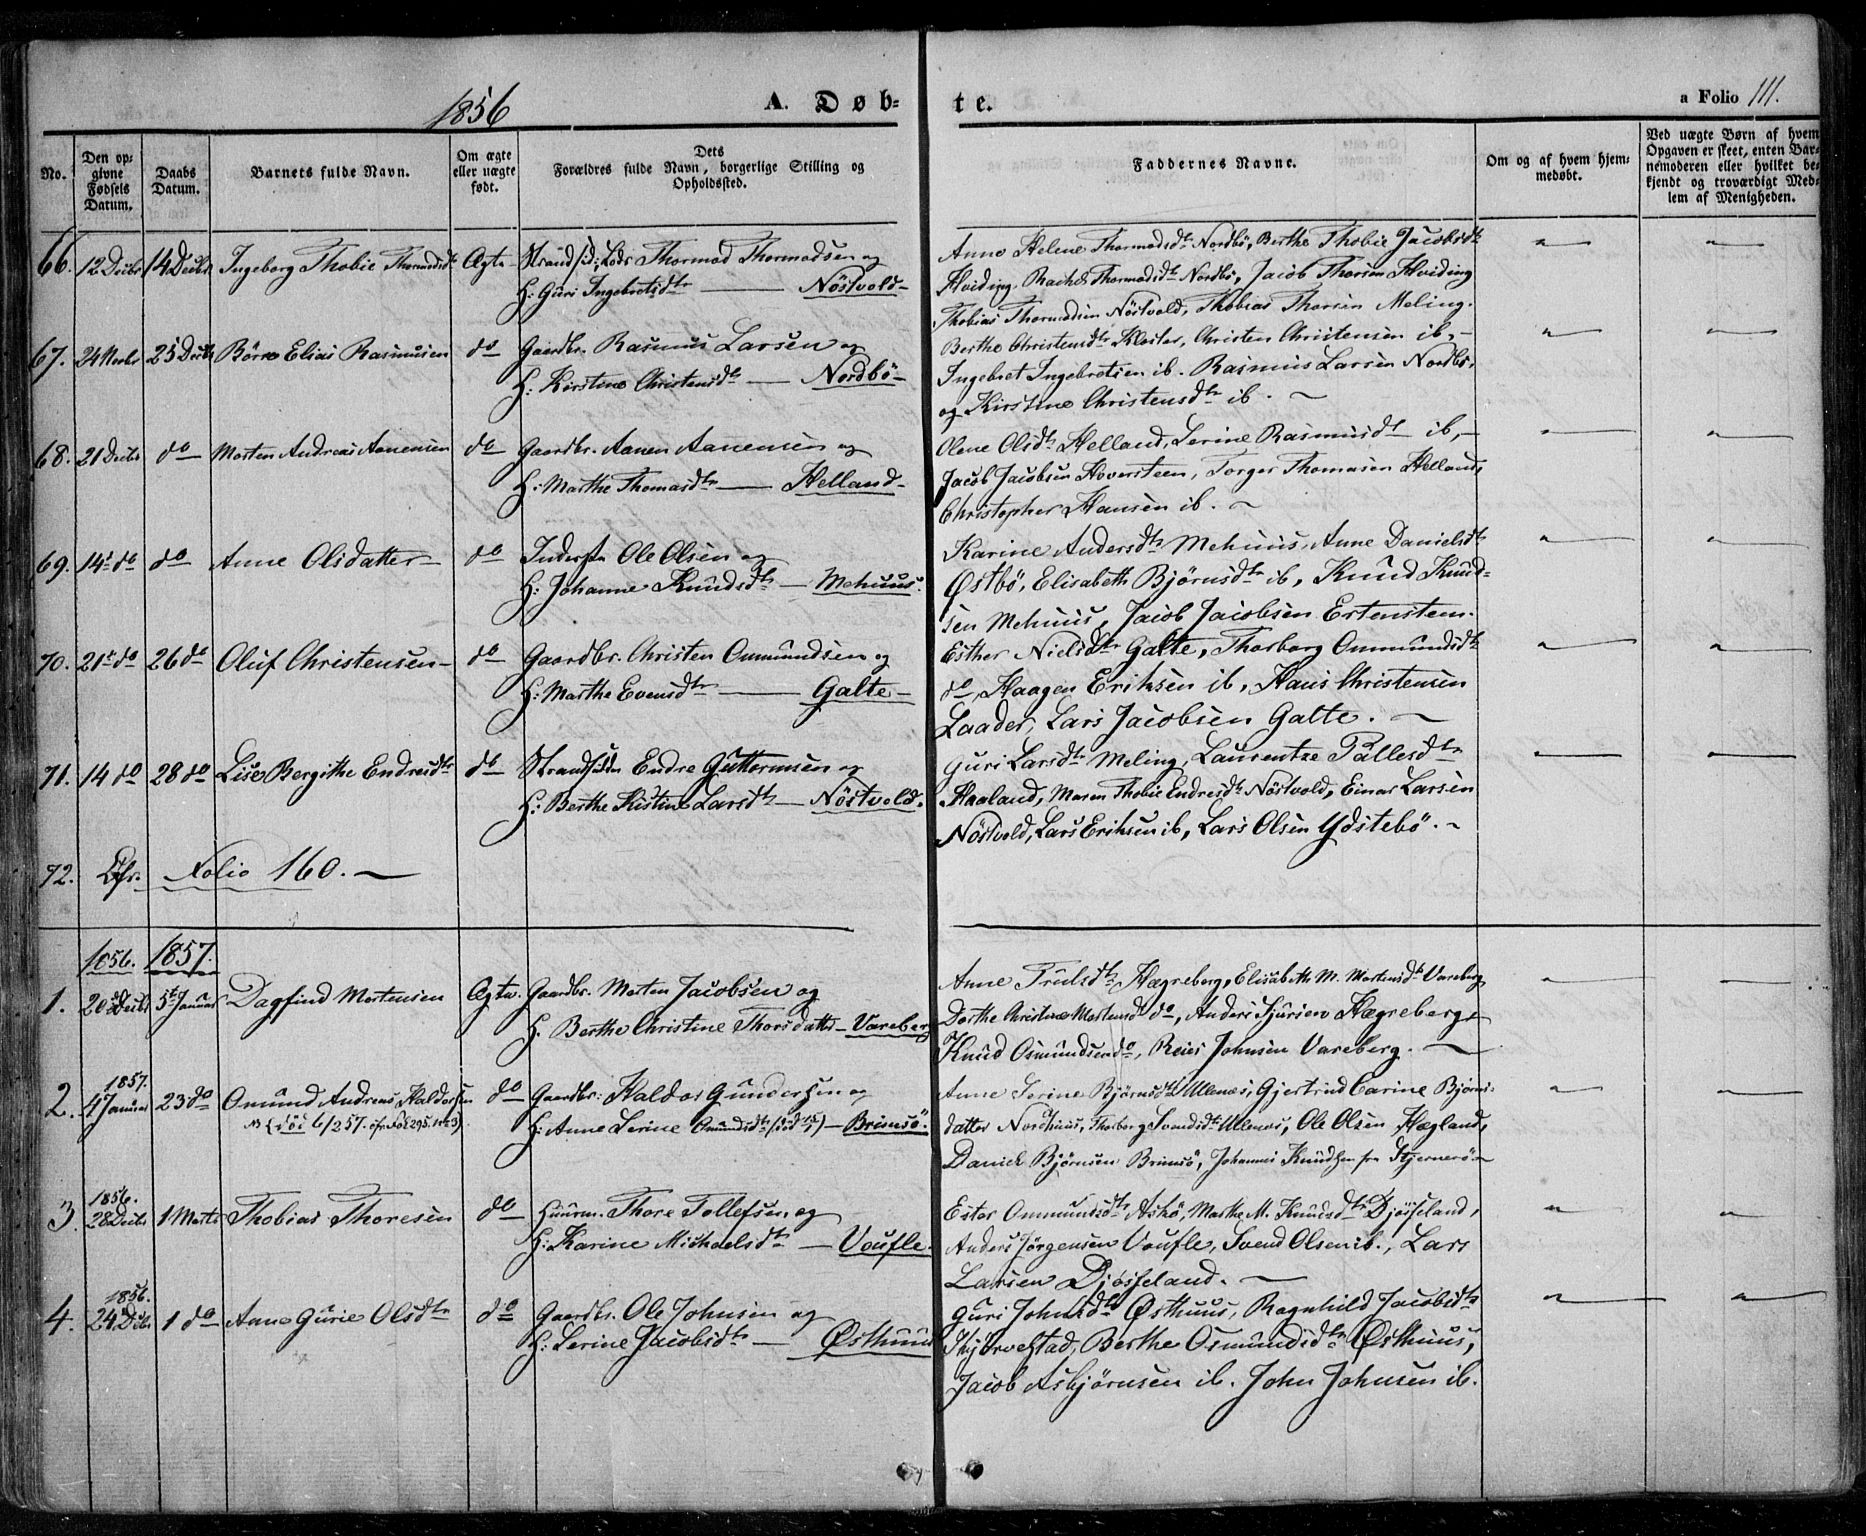 1856
A. Døb-
te.
a Folio 111.
No.
Den op-
givne
Fødsels
Datum.
Daabs
Datum.
Barnets fulde Navn.
Om ægte
eller uægte
født.
Dets
Forældres fulde Navn, borgerlige Stilling og
Opholdssted.
Faddernes Navne.
Om og af hvem hjem-
medøbt.
Ved uægte Børn af hvem
Opgaven er skeet, enten Bar-
nemoderen eller hvilket be-
kjendt og troværdigt Med-
lem af Menigheden.
66. 12 Decbr 14 Decbr Ingeborg Thobie Thormodsdtr Ægte Thormod Thormodsen og
H: Guri Ingebretsdtr — Nöstvold
Anne Helene Thormodsdtr Nordbö, Berthe Thobie Jacobsdtr
Hviding, Rachel Thormodsdtr Nordbö, Jacob Thorsen Hviding
Thobias Thormodsen Nöstvold, Thobias Thorsen Meling.
67. 24 Novbr 25 Decbr Börre Elias Rasmusen do Gaardbr. Rasmus Larsen og
H: Kirstine Christensdtr — Nordbö
Berthe Christensdtr Kloster, Christen Christensen ib,
Ingebret Ingebretsen ib. Rasmus Larsen Nordbö,
og Kirstine Christensdtr ib.
68. 21 Decbr do Morten Andreas Aanensen do Gaardbr. Aanen Aanensen og
H: Marthe Thomasdtr — Helland
Olene Olsdtr Helland, Serine Rasmusdtr ib,
Jacob Jacobsen Hoversteen, Torger Thomasen Helland,
Christopher Hansen ib.
69. 14 do do Anne Olsdatter do Inderst Ole Olsen og
H: Johanne Knudsdtr — Mehuus.
Karine Andersdtr Mehuus, Anne Danielsdtr
Østbö, Elisabeth Björnsdtr ib, Knud Knud-
sen Mehuus, Jacob Jacobsen Ertensten.
70. 21 do 26 do Oluf Christensen do Gaardbr. Christen Ommundsen og
H: Marthe Evensdtr — Galte
Esther Nielsdtr Galte, Thorborg Ommundsdtr
do, Haagen Eriksen ib, Hans Christensen
Laader, Lars Jacobsen Galte.
71. 14 do 28 do Lise Bergithe Endresdtr do Strandsidder Endre Guttormsen og
H: Berthe Kistine Larsdtr — Nöstvold.
Guri Larsdtr Meling, Laurentze Pallesdtr
Haaland, Maren Thobie Endresdtr Nöstvold, Einar Larsen
Nöstvold, Lars Eriksen ib, Lars Olsen Ydstebö.
72. Cfr. Folio 160.
1856. 1857.
1. 20 Decbr 5t Januar Dagfind Mortensen Ægte Gaardbr. Morten Jacobsen og
H. Berthe Christine Thorsdatter — Vareberg
Anne Trulsdtr Hægreberg, Elisabeth M. Mortensdtr Vareberg
Dorthe Christine Mortensdtr do, Anders Sjursen Hægreberg,
Knud Osmundsen do, Reier Johnsen Vareberg.
1857.
2. 4 Januar 23 do Omund Andreas Haldorsen do Gaardbr. Haldor Gundersen og
H. Anne Serine Omundsdtr — Brimsö.
Anne Serine Björnsdtr Ulenes, Gjertrud Carine Björns-
datter Nordhuus, Thorborg Svendsdtr Ulenes, Ole Olsen Hægland,
Daniel Björnsen Brimsö, Johannes Knudsen fra Stjernerö
1856.
3. 28 Decbr 1 Marts Thobias Thoresen do Huusm. Thore Tollefsen og
H: Karine Michaelsdtr — Voufle.
Ester Ommundsdtr Askö, Marthe M. Knudsdtr Djösseland,
Anders Jörgensen Voufle, Svend Olsen ib., Lars
Larsen Djösseland.
1856.
4. 24 Decbr 1 do Anne Gurie Olsdtr do Gaardbr. Ole Johnsen og
H. Serine Jacobsdtr — Østhuus
Guri Johnsdtr Østhuus, Ragnhild Jacobsdtr
Berthe Osmundsdtr Østhuus,
Jacob Asbjörnsen ib. John Johnsen ib.